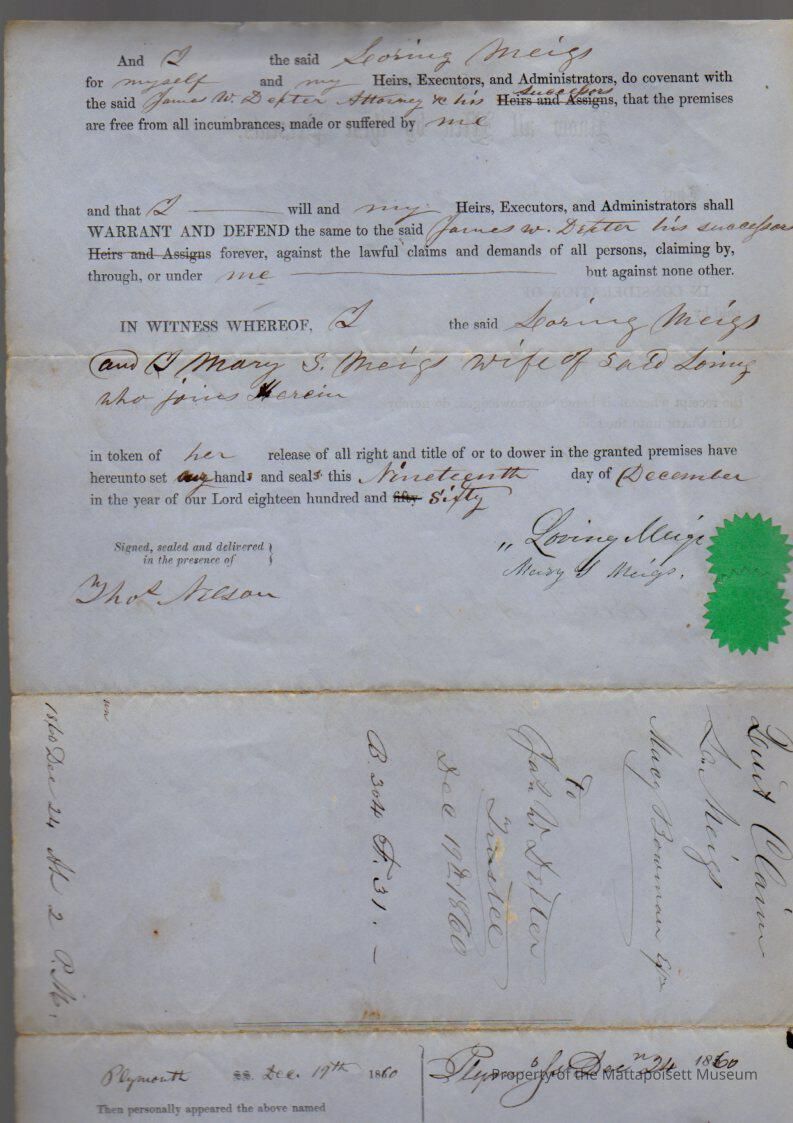 And I the said Loring Meigs
for myself and my Heirs, Executors, and Administrators, do covenant with
the said James W. Dexter Attorney & his successors Heirs and Assigns, that the premises
are free from all incumbrances, made or suffered by me
and that I will and my Heirs, Executors, and Administrators shall
WARRANT AND DEFEND the same to the said James W. Dexter his successors
Heirs and Assigns forever, against the lawful claims and demands of all persons, claiming by,
through, or under me but against none other.
IN WITNESS WHEREOF, I the said Loring Meigs
and I Mary S. Meigs wife of said Loring
who joins Herein
in token of her release of all right and title of or to dower in the granted premises have
hereunto set our hands and seals this Nineteenth day of December
in the year of our Lord eighteen hundred and fifty Sixty
Signed, sealed and delivered
in the presence of
Loring Meigs
Mary S Meigs.
Thos. Nelson
Quit Claim
Lo Meigs
Bowman
to
Jas W Dexter
Trustee
Dec 19th 1860
B. 304 F. 31. —
1860 Dec 24 At 2 P.M.
Plymouth SS. Dec. 19th 1860
Then personally appeared the above named
Decr 24 1860
Property of the Mattapoisett Museum